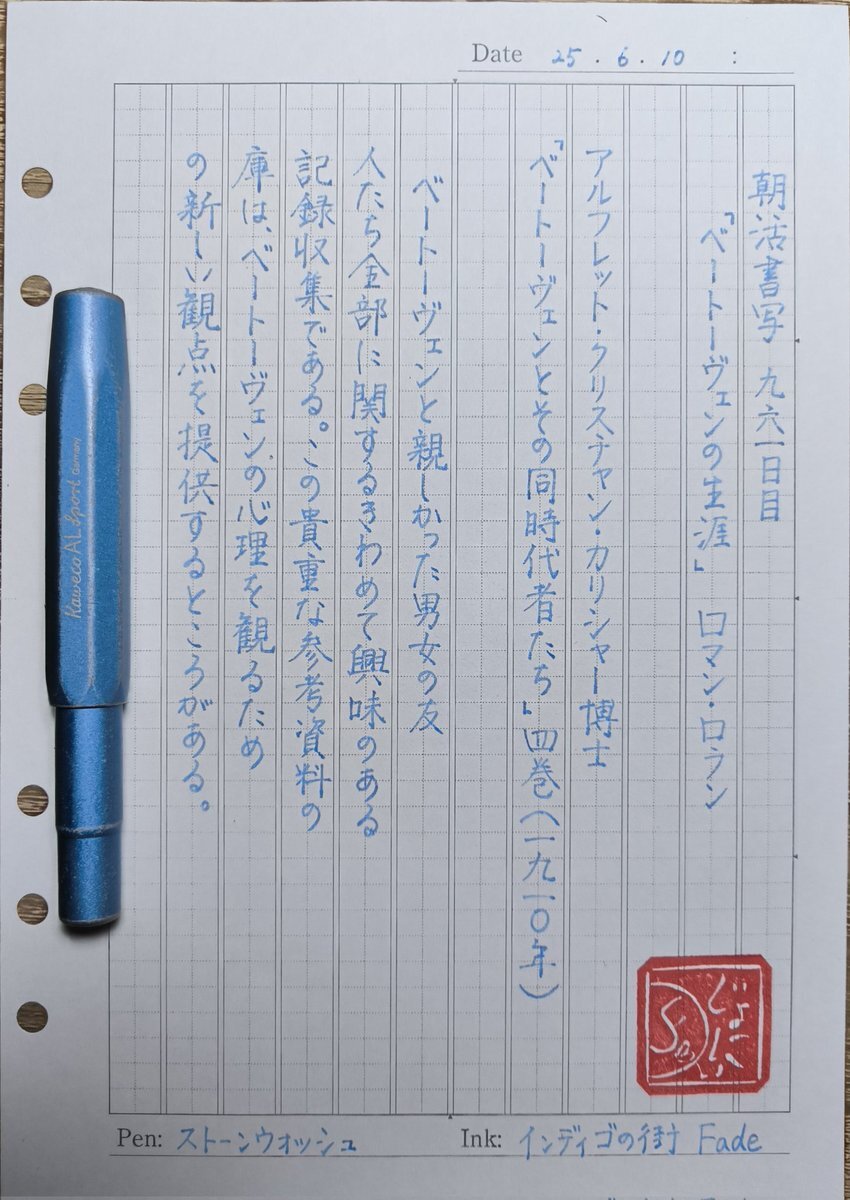 Date 25.6.10 :
朝活書写 九六一日目
『ベートーヴェンの生涯』 ロマン・ロラン
アルフレット・クリスチャン・カリシャー博士
『ベートーヴェンとその同時代者たち』四巻(一九一〇年)
ベートーヴェンと親しかった男女の友
人たち全部に関するきわめて興味のある
記録収集である。この貴重な参考資料の
庫は、ベートーヴェンの心理を観るため
の新しい観点を提供するところがある。
Kaweco AL Sport Germany
Pen: ストーンウォッシュ
Ink: インディゴの街 Fade